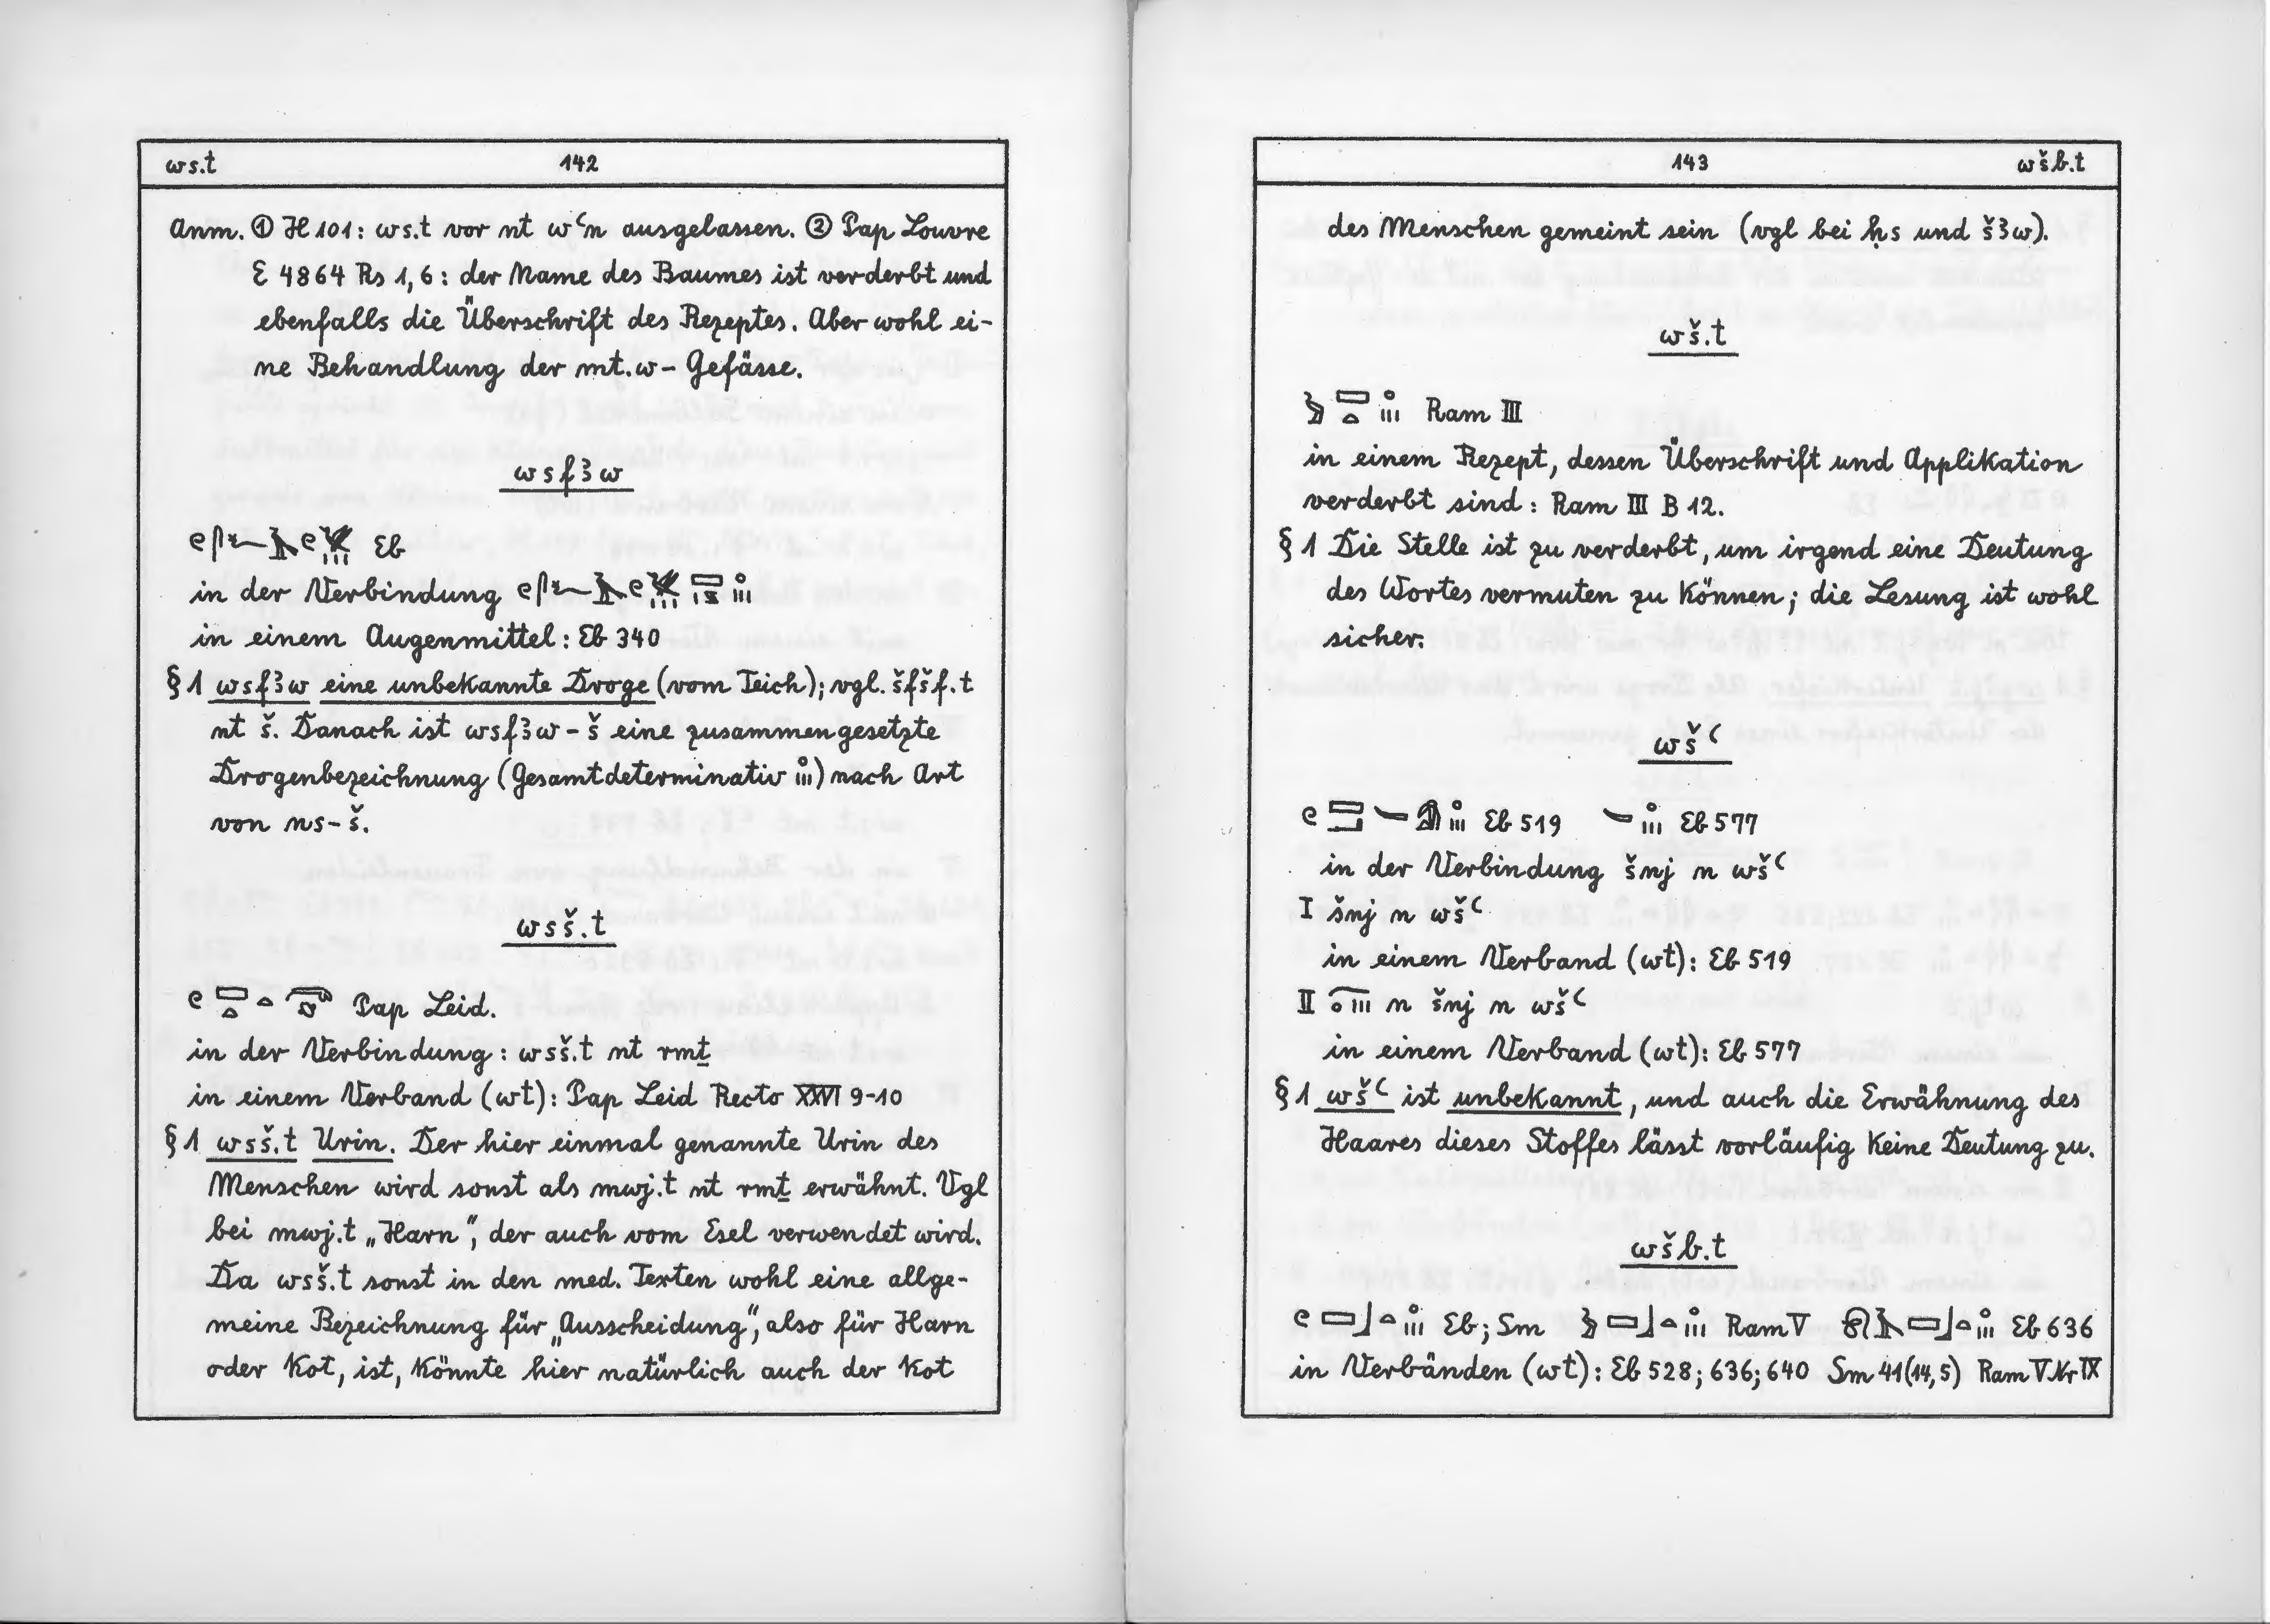 ws.t 142
Anm. ① H 101: ws.t vor nt wꜥn ausgelassen. ② Pap Louvre
E 4864 Rs 1,6: der Name des Baumes ist verderbt und
ebenfalls die Überschrift des Rezeptes. Aber wohl ei-
ne Behandlung der mt.w-Gefässe.
wsfꜣw
Eb
in der Verbindung
in einem Augenmittel: Eb 340
§ 1 wsfꜣw eine unbekannte Droge (vom Teich); vgl. šfšf.t
nt š. Danach ist wsfꜣw-š eine zusammengesetzte
Drogenbezeichnung (Gesamtdeterminativ) nach Art
von ns-š.
wsš.t
Pap Leid.
in der Verbindung: wsš.t nt rmṯ
in einem Verband (wt): Pap Leid Recto XXVI 9-10
§ 1 wsš.t Urin. Der hier einmal genannte Urin des
Menschen wird sonst als mwj.t nt rmṯ erwähnt. Vgl
bei mwj.t „Harn“, der auch vom Esel verwendet wird.
Da wsš.t sonst in den med. Texten wohl eine allge-
meine Bezeichnung für „Ausscheidung“, also für Harn
oder Kot, ist, könnte hier natürlich auch der Kot
143 wšb.t
des Menschen gemeint sein (vgl bei ḥs und šꜣw).
wš.t
Ram III
in einem Rezept, dessen Überschrift und Applikation
verderbt sind: Ram III B 12.
§ 1 Die Stelle ist zu verderbt, um irgend eine Deutung
des Wortes vermuten zu können; die Lesung ist wohl
sicher.
wšꜥ
Eb 519 Eb 577
in der Verbindung šnj n wšꜥ
I šnj n wšꜥ
in einem Verband (wt): Eb 519
II n šnj n wšꜥ
in einem Verband (wt): Eb 577
§ 1 wšꜥ ist unbekannt, und auch die Erwähnung des
Haares dieses Stoffes lässt vorläufig keine Deutung zu.
wšb.t
Eb; Sm Ram V Eb 636
in Verbänden (wt): Eb 528; 636; 640 Sm 41 (14,5) Ram V Nr IX